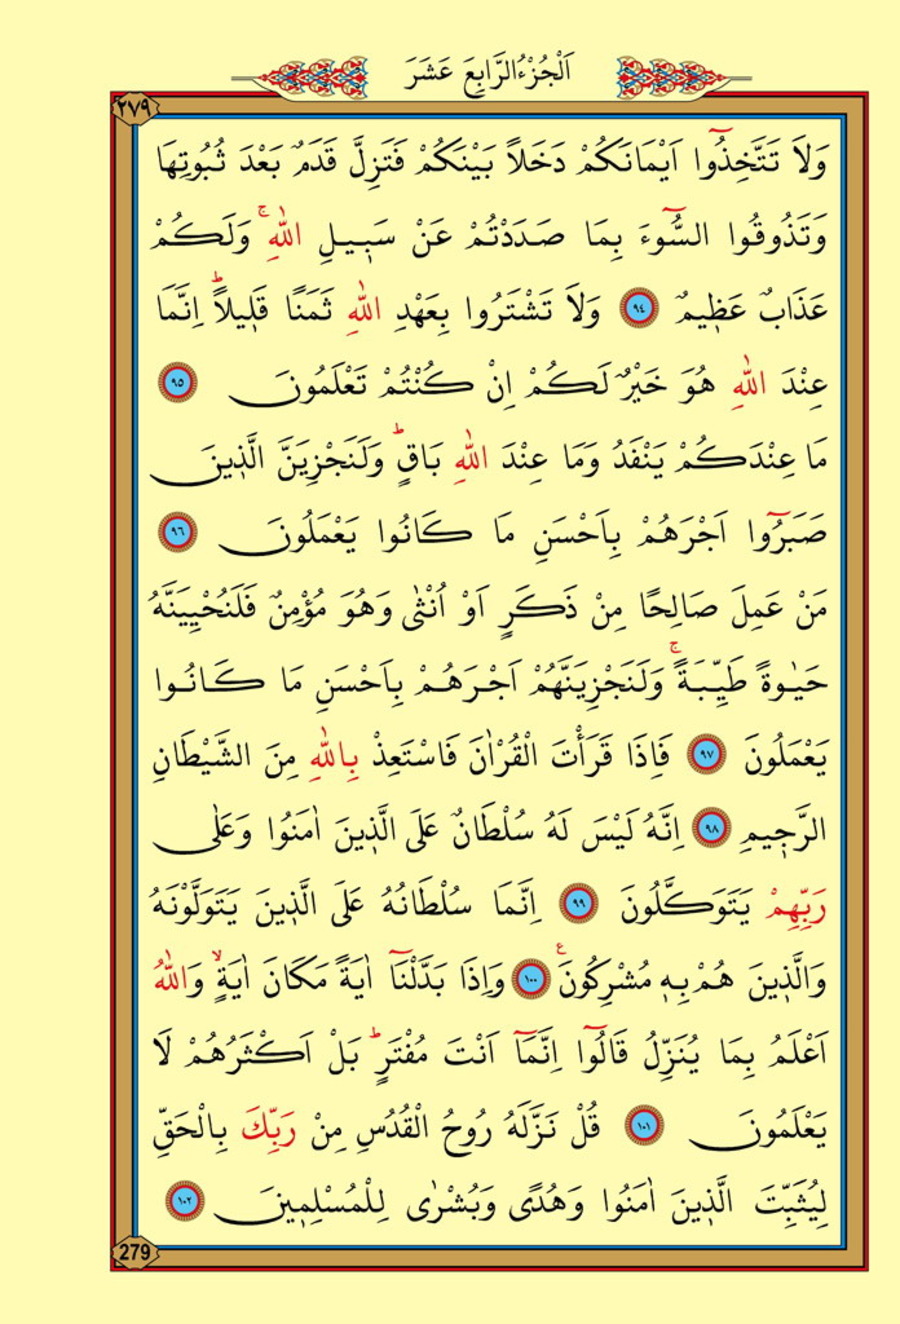 اَلْجُزْءُ الرَّابِعَ عَشَرَ
٢٧٩
وَلَا تَتَّخِذُٓوا اَيْمَانَكُمْ دَخَلاً بَيْنَكُمْ فَتَزِلَّ قَدَمٌ بَعْدَ ثُبُوتِهَا
وَتَذُوقُوا السُّٓوءَ بِمَا صَدَدْتُمْ عَنْ سَبٖيلِ اللّٰهِۚ وَلَكُمْ
عَذَابٌ عَظٖيمٌ ٩٤ وَلَا تَشْتَرُوا بِعَهْدِ اللّٰهِ ثَمَنًا قَلٖيلاًؕ اِنَّمَا
عِنْدَ اللّٰهِ هُوَ خَيْرٌ لَكُمْ اِنْ كُنْتُمْ تَعْلَمُونَ ٩٥
مَا عِنْدَكُمْ يَنْفَدُ وَمَا عِنْدَ اللّٰهِ بَاقٍؕ وَلَنَجْزِيَنَّ الَّذٖينَ
صَبَرُٓوا اَجْرَهُمْ بِاَحْسَنِ مَا كَانُوا يَعْمَلُونَ ٩٦
مَنْ عَمِلَ صَالِحًا مِنْ ذَكَرٍ اَوْ اُنْثٰى وَهُوَ مُؤْمِنٌ فَلَنُحْيِيَنَّهُ
حَيٰوةً طَيِّبَةًۚ وَلَنَجْزِيَنَّهُمْ اَجْرَهُمْ بِاَحْسَنِ مَا كَانُوا
يَعْمَلُونَ ٩٧ فَاِذَا قَرَأْتَ الْقُرْاٰنَ فَاسْتَعِذْ بِاللّٰهِ مِنَ الشَّيْطَانِ
الرَّجٖيمِ ٩٨ اِنَّهُ لَيْسَ لَهُ سُلْطَانٌ عَلَى الَّذٖينَ اٰمَنُوا وَعَلٰى
رَبِّهِمْ يَتَوَكَّلُونَ ٩٩ اِنَّمَا سُلْطَانُهُ عَلَى الَّذٖينَ يَتَوَلَّوْنَهُ
وَالَّذٖينَ هُمْ بِهٖ مُشْرِكُونَࣖ ١٠٠ وَاِذَا بَدَّلْنَٓا اٰيَةً مَكَانَ اٰيَةٍۙ وَاللّٰهُ
اَعْلَمُ بِمَا يُنَزِّلُ قَالُٓوا اِنَّمَٓا اَنْتَ مُفْتَرٍؕ بَلْ اَكْثَرُهُمْ لَا
يَعْلَمُونَ ١٠١ قُلْ نَزَّلَهُ رُوحُ الْقُدُسِ مِنْ رَبِّكَ بِالْحَقِّ
لِيُثَبِّتَ الَّذٖينَ اٰمَنُوا وَهُدًى وَبُشْرٰى لِلْمُسْلِمٖينَ ١٠٢
279